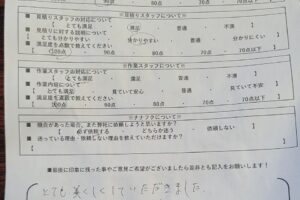 ※見積りスタッフについて※
■ 見積りスタッフの対応について
とても満足 満足 普通 不満
■ 見積りに対する説明について
とても分かりやすい 分かりやすい 普通 分かりにくい
■ 満足度を点数で教えてください
100点 90点 80点 70点 70点以下
※作業スタッフについて※
■ 作業スタッフの対応について
とても満足 満足 普通 不満
■ 作業内容について
とても満足 見ていて安心 普通 見ていて不安
■ 満足度を点数で教えてください
100点 90点 80点 70点 70点以下
※ナナフクについて※
■ 機会があった場合、また弊社に依頼しようと思いますか？
必ず依頼する どちらか迷う 依頼しない
■ 迷っている理由・依頼しない理由を教えていただけますか？
■最後に印象に残った事やご意見ご希望がございましたら是非とも記入をお願いします！
とても美しくしていただきました